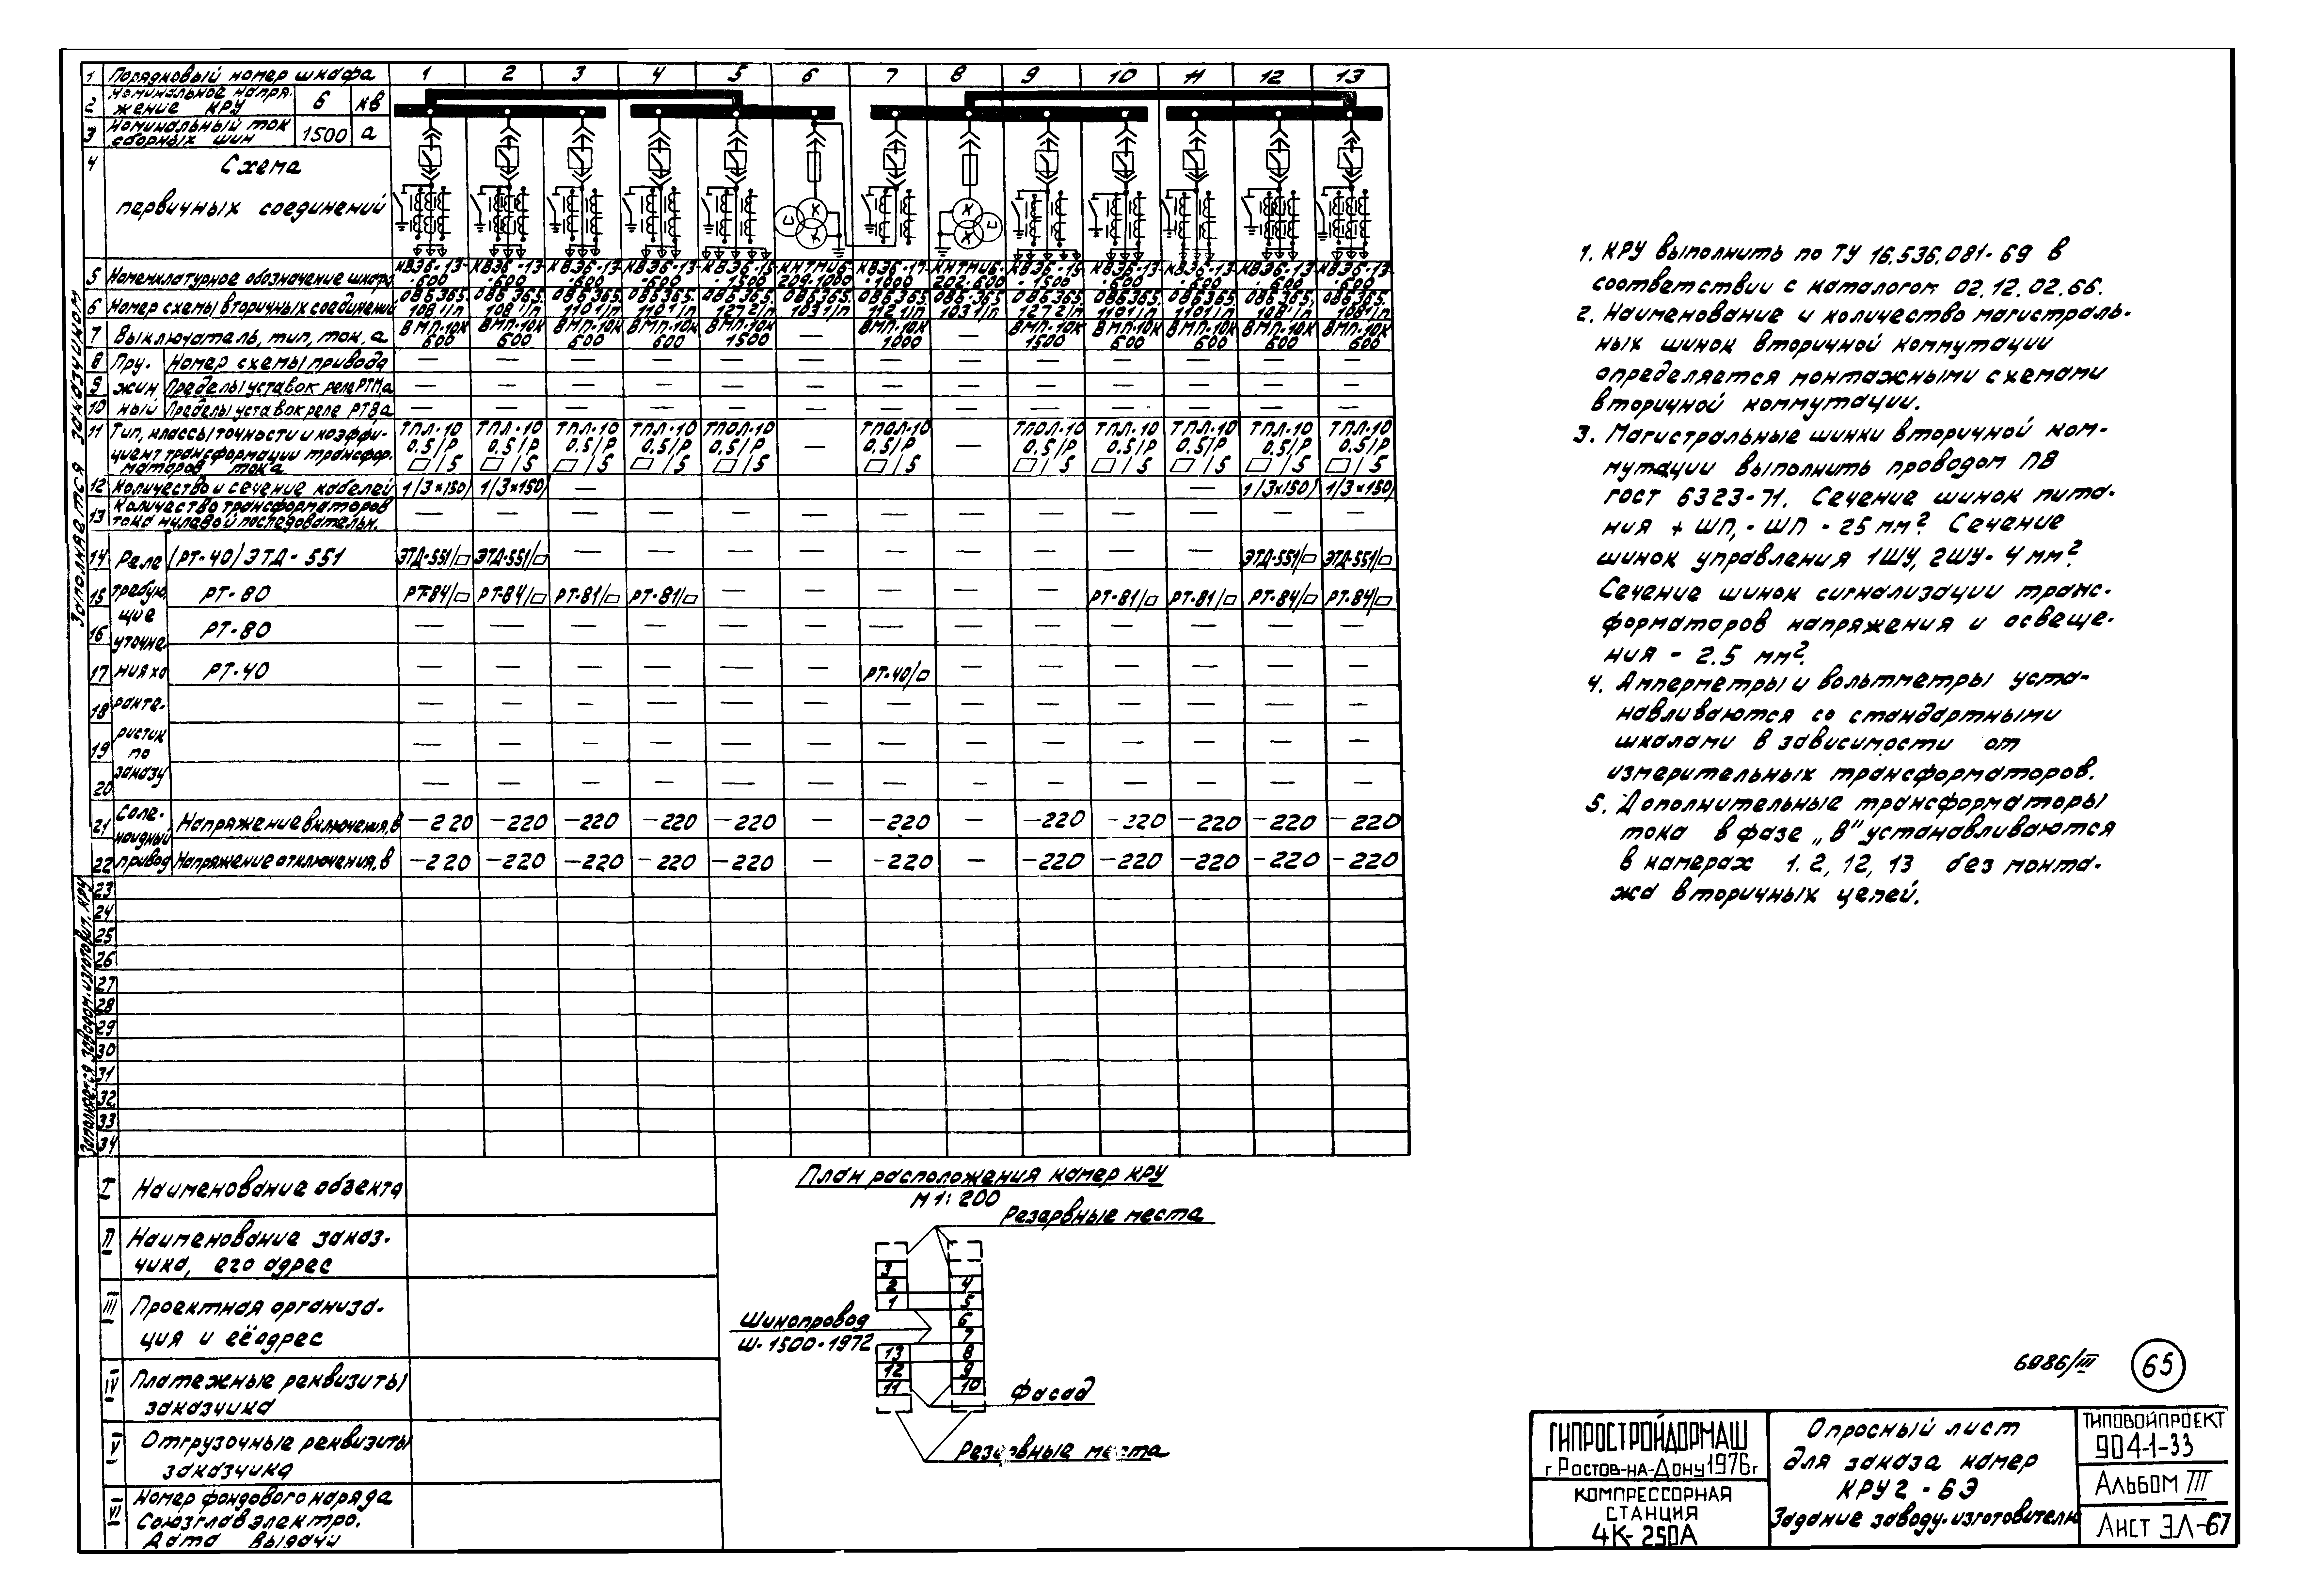 1 Порядковый номер шкафа 1 2 3 4 5 6 7 8 9 10 11 12 13
2 Номинальное напря-
жение КРУ 6 кв
3 Номинальный ток
сборных шин 1500 а
4 Схема
первичных соединений
5 Номенклатурное обозначение шкафа КВЭ6-13- КВЭ6-13- КВЭ6-13- КВЭ6-13- КВЭ6-15- КВЭ6-17- КВЭ6-15- КВЭ6-13- КВЭ6-13- КВЭ6-13- КВЭ6-13-
-600 -600 -600 -600 -1500 209-1000 -1000 202-600 -1500 -600 -600 -600 -600
6 Номер схемы вторичных соединений 086365. 086365. 086365. 086365. 086365. 086365. 086365. 086.365 086365. 086365. 086365. 086365. 086365.
1081/п 1081/п 1101/п 1101/п 1272/п 1031/п 1121/п 1031/п 1272/п 1101/п 1101/п 1081/п 1081/п
7 Выключатель, тип, ток, а ВМП-10К ВМП-10К ВМП-10К ВМП-10К ВМП-10К — ВМП-10К — ВМП-10К ВМП-10К ВМП-10К ВМП-10К ВМП-10К
600 600 600 600 1500 1000 1500 600 600 600 600
8 Пру- Номер схемы привода — — — — — — — — — — — — —
9 жин Пределы уставок реле РТМ,а — — — — — — — — — — — — —
10 ный Пределы уставок реле РТВ,а — — — — — — — — — — — — —
11 Тип, классы точности и коэффи- ТПЛ-10 ТПЛ-10 ТПЛ-10 ТПЛ-10 ТПОЛ-10 ТПОЛ-10 ТПОЛ-10 ТПЛ-10 ТПЛ-10 ТПЛ-10 ТПЛ-10
циент трансформации трансфор- 0.5/Р 0.5/Р 0.5/Р 0.5/Р 0.5/Р — 0.5/Р — 0.5/Р 0.5/Р 0.5/Р 0.5/Р 0.5/Р
маторов тока □/5 □/5 □/5 □/5 □/5 □/5 □/5 □/5 □/5 □/5 □/5
12 Количество и сечение кабелей 1/3×150/ 1/3×150/ — — — — — — — — — 1/3×150/ 1/3×150/
13 Количество трансформаторов
тока нулевой последовательн. — — — — — — — — — — — — —
14 Реле /РТ-40/ЭТД-551 ЭТД-551/□ ЭТД-551/□ — — — — — — — — — ЭТД-551/□ ЭТД-551/□
15 требую- РТ-80 РТ-84/□ РТ-84/□ РТ-81/□ РТ-81/□ — — — — — РТ-81/□ РТ-81/□ РТ-84/□ РТ-84/□
щие
16 РТ-80 — — — — — — — — — — — — —
уточне-
17 ния ха РТ-40 — — — — — — РТ-40/□ — — — — — —
18 ракте- — — — — — — — — — — — — —
ристик
19 по — — — — — — — — — — — — —
заказу
20 — — — — — — — — — — — — —
Соле-
21 ноидный Напряжение включения, в -220 -220 -220 -220 -220 — -220 — -220 -220 -220 -220 -220
22 привод Напряжение отключения, в -220 -220 -220 -220 -220 — -220 — -220 -220 -220 -220 -220
23
24
25
26
27
28
29
30
31
32
33
34
Заполняется заказчиком
Заполняется заводом-изготовит. КРУ
I Наименование объекта
II Наименование заказ-
чика, его адрес
III Проектная организа-
ция и её адрес
IV Платежные реквизиты
заказчика
V Отгрузочные реквизиты
заказчика
VI Номер фондового наряда
Союзглавэлектро.
Дата выдачи
План расположения камер КРУ
М 1:200
Резервные места
3
2 4
1 5
6
7
13 8
12 9
11 10
Шинопровод
Ш-1500-1972
Фасад
Резервные места
1. КРУ выполнить по ТУ 16.536.081-69 в
соответствии с каталогом 02.12.02.66.
2. Наименование и количество магистраль-
ных шинок вторичной коммутации
определяется монтажными схемами
вторичной коммутации.
3. Магистральные шинки вторичной ком-
мутации выполнить проводом ПВ
ГОСТ 6323-71. Сечение шинок пита-
ния + ШП, - ШП - 25 мм². Сечение
шинок управления 1ШУ, 2ШУ- 4 мм².
Сечение шинок сигнализации транс-
форматоров напряжения и освеще-
ния - 2.5 мм².
4. Амперметры и вольтметры уста-
навливаются со стандартными
шкалами в зависимости от
измерительных трансформаторов.
5. Дополнительные трансформаторы
тока в фазе „В" устанавливаются
в камерах 1.2, 12, 13 без монта-
жа вторичных цепей.
6986/III 65
ГИПРОСТРОЙДОРМАШ
г Ростов-на-Дону 1976 г
КОМПРЕССОРНАЯ
СТАНЦИЯ
4К-250А
Опросный лист
для заказа камер
КРУ2-6Э
Задание заводу-изготовителю
ТИПОВОЙ ПРОЕКТ
904-1-33
Альбом III
Лист ЭЛ-67